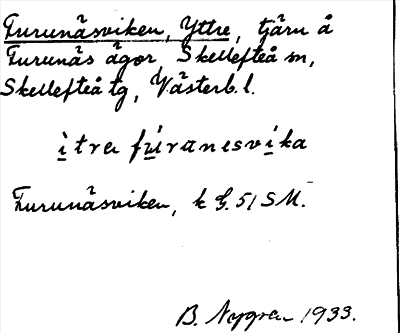 Furunäsviken, Yttre, tjärn å
Furunäs ägor, Skellefteå sn,
Skellefteå tg, Västerb. l.
itra furanesvika
Furunäsviken, k G. 51 SM.
B. Nygren 1933.